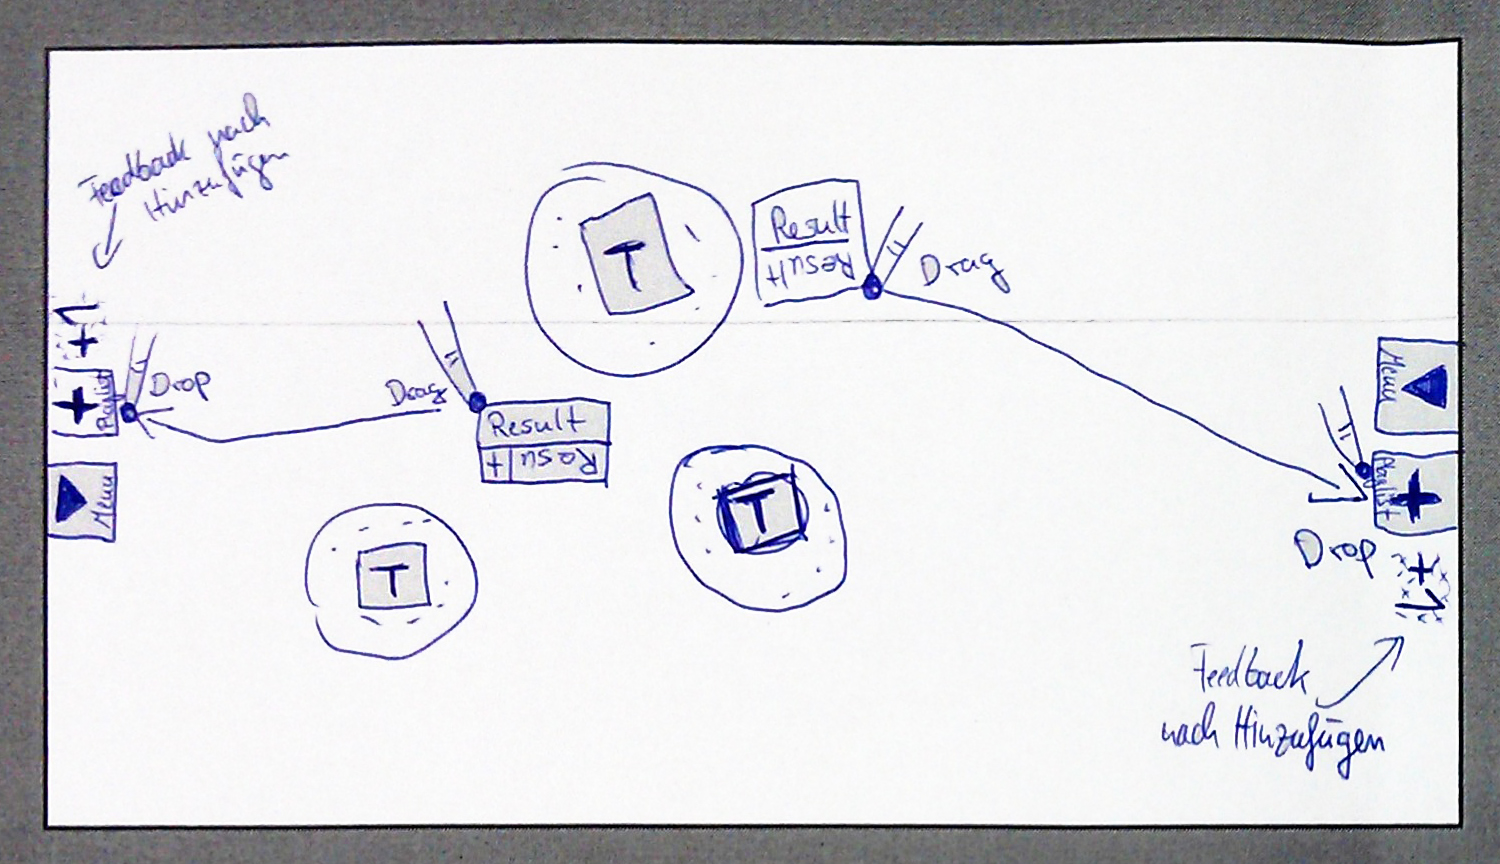 Feedback nach
Hinzufügen
+1
+
Playlist
Drop
Menu
Drag
Result
Result
T
Result
Result
Drag
T
T
Menu
Playlist
+
Drop
+1
Feedback
nach Hinzufügen